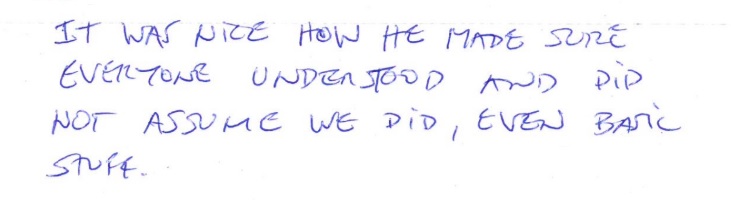 IT WAS NICE HOW HE MADE SURE
EVERYONE UNDERSTOOD AND DID
NOT ASSUME WE DID, EVEN BASIC
STUFF.